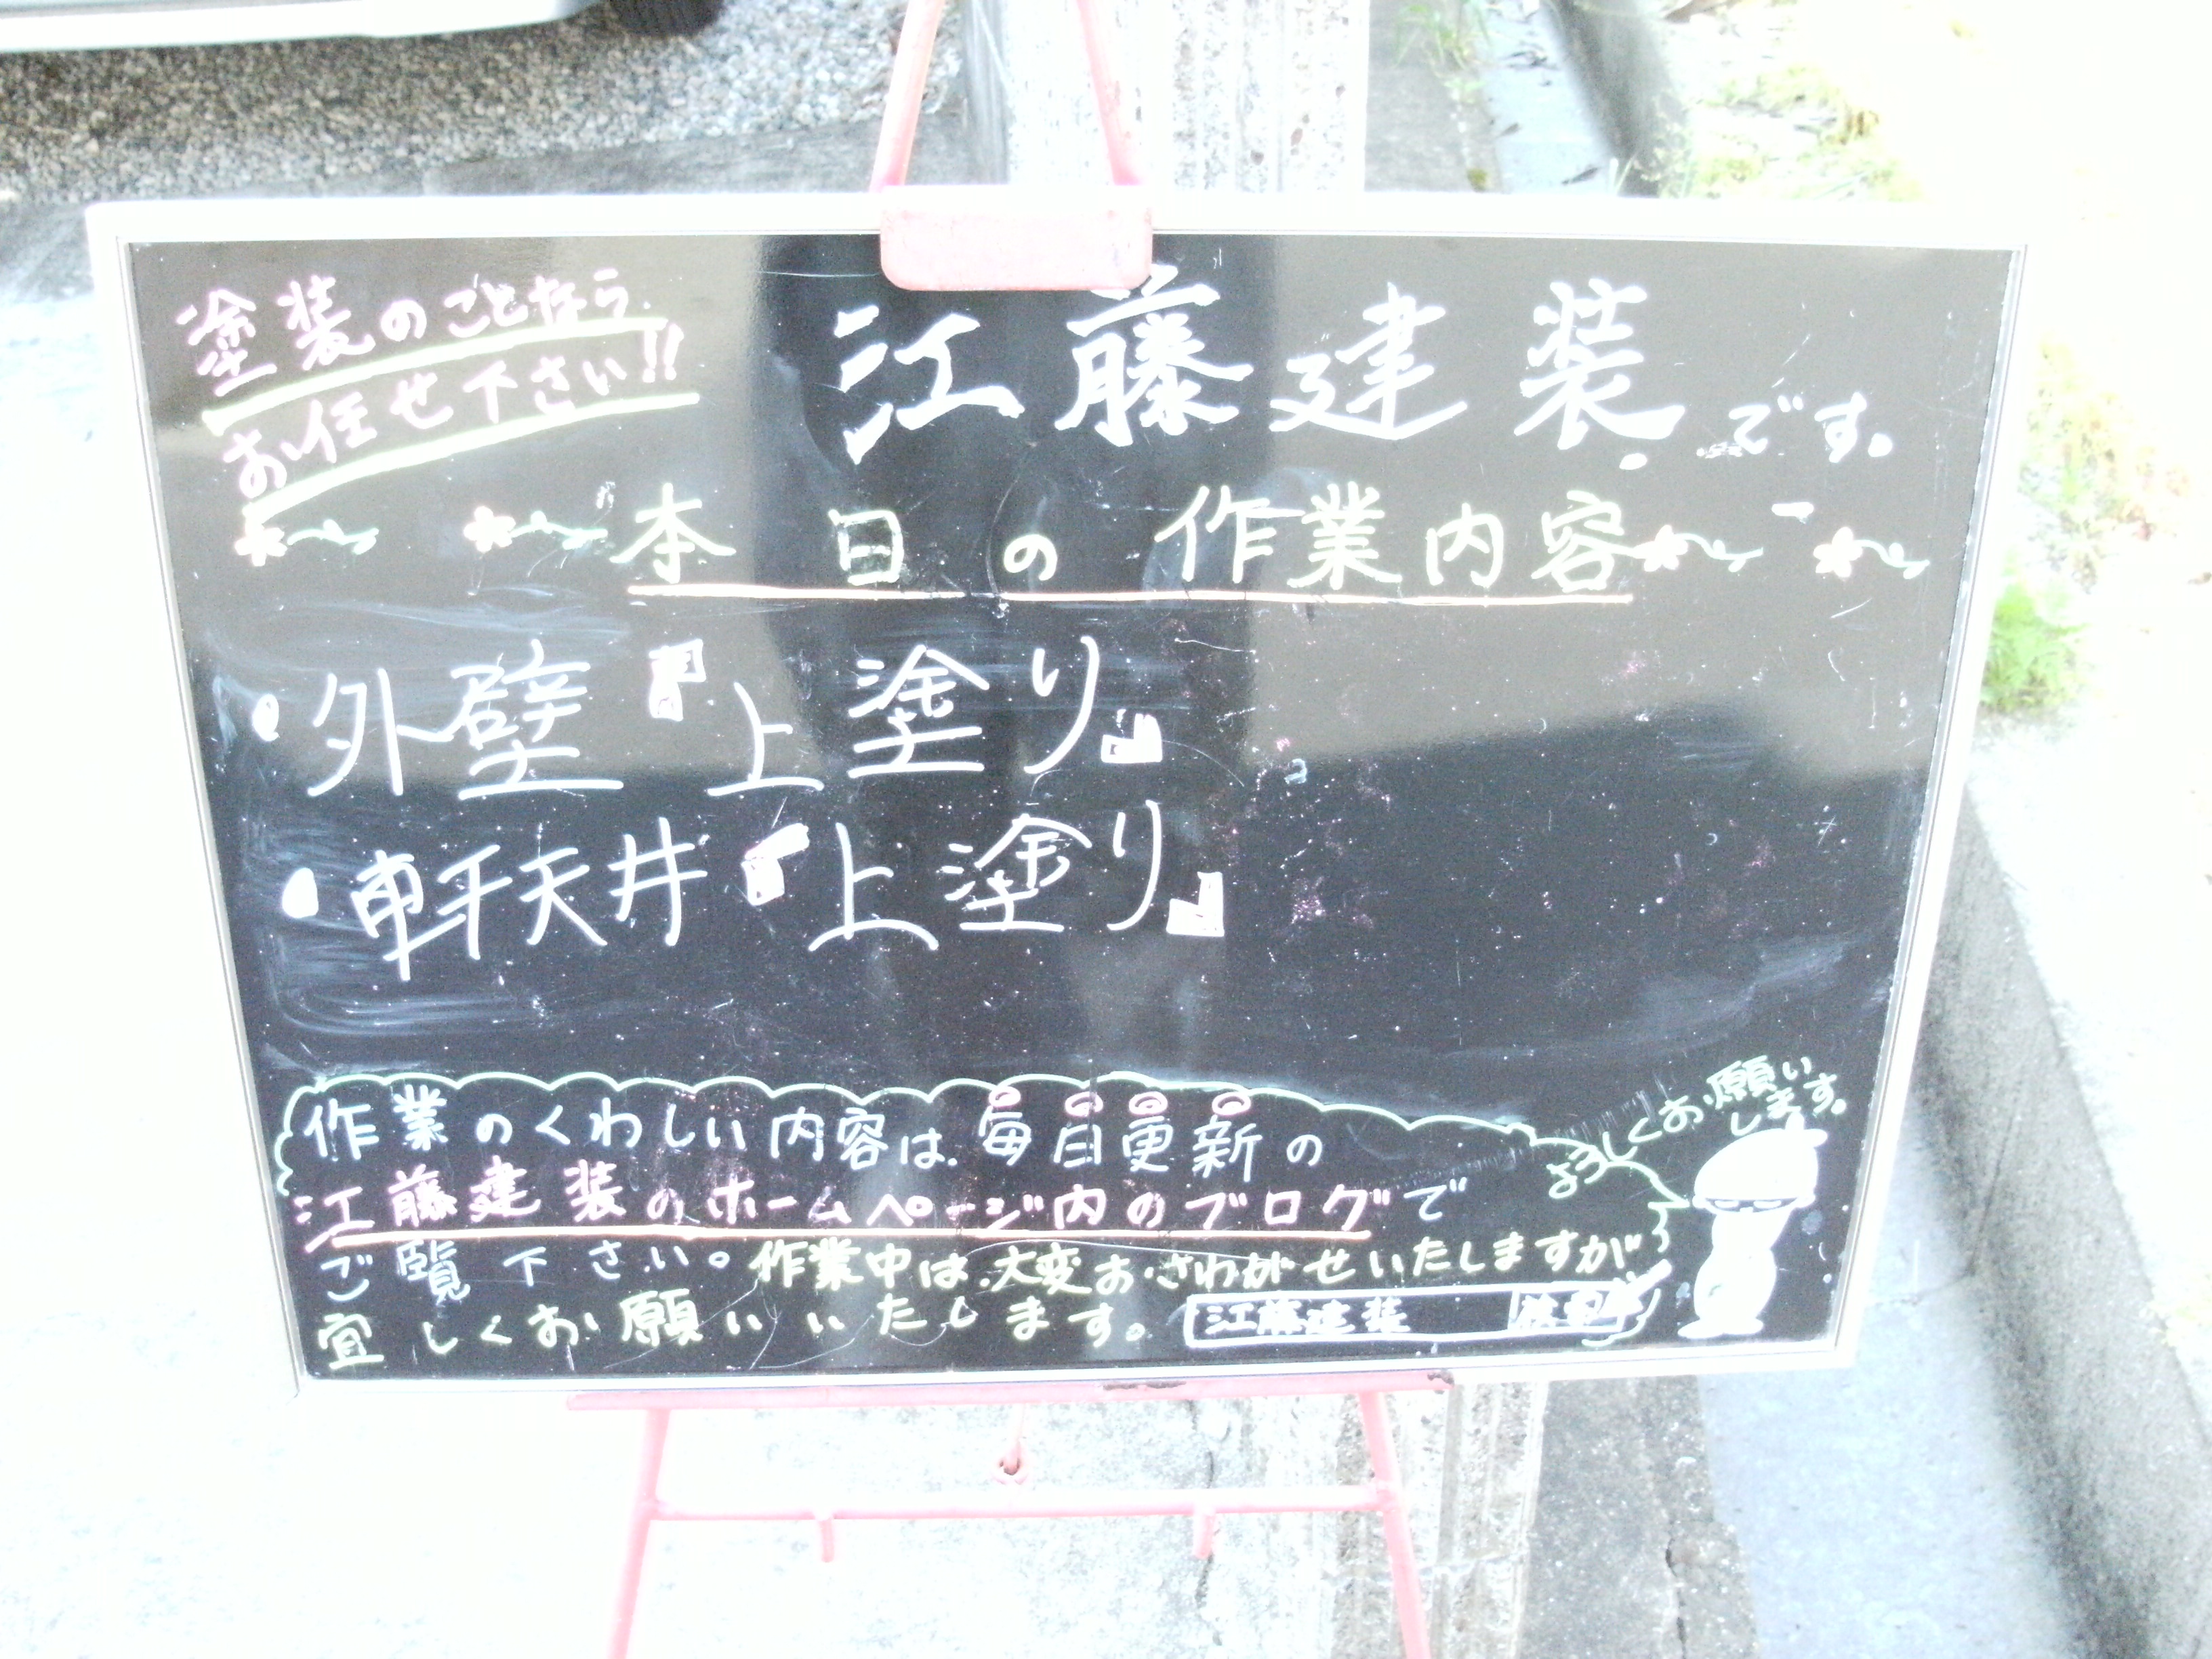 塗装のことなら
お任せ下さい!!
江藤建装です。
本日の作業内容
・外壁『上塗り』
・軒天井『上塗り』
作業のくわしい内容は、毎日更新の
江藤建装のホームページ内のブログで
ご覧下さい。作業中は、大変おさわがせいたしますが
宜しくお願いいたします。
江藤建装 検索
よろしくお願い
します。